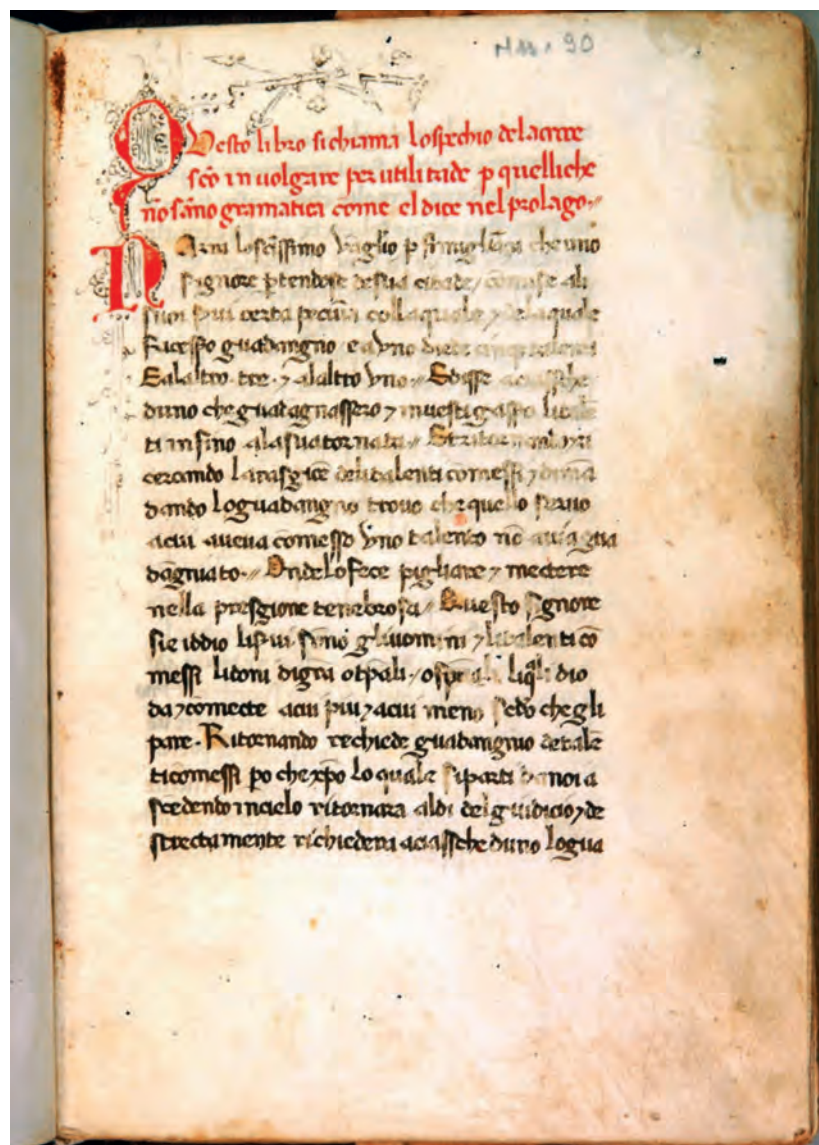 Mss. 90
Questo libro sichiama lospechio delacroce
sc̄o in uolgare per utilitade p quelliche
nō sāno gramatica come el dice nel prolago
Narra losc̄issimo vāglio p similgliāça che uno
signore ptendose desua citade cōmise ali
suoi serui certa pecūia collaquale ⁊ delaquale
facesso guadangno e a vno diede cinq talenti
Ealaltro tre ⁊ alaltro vno Edisse aciasche
duno che guadagnassero ⁊ inuestigasso li talē
ti insino alasua tornata Et ritornando
cercando la rasgiōe deli talenti comessi ⁊ dimā
dando loguadangno trouo che quello seruo
acui aueua comesso vno talento nō auia gua
dāgniato Onde lo fece pigliare ⁊ mectere
nella presgione tenebrosa Questo signore
sie iddio li serui sono gli uomini ⁊ li talenti cō
messi li doni di gr̄a otp̄ali o sp̄uali liq̄li dio
da ⁊ comecte acui piu ⁊ acui meno sc̄do che gli
pare Ritornando rechiede guadangnio de talē
ti comessi po che xp̄o lo quale si parti da noi a
scedendo in cielo ritornara aldi del guidicio ⁊ de
strectamente richiedera aciasscheduno logua